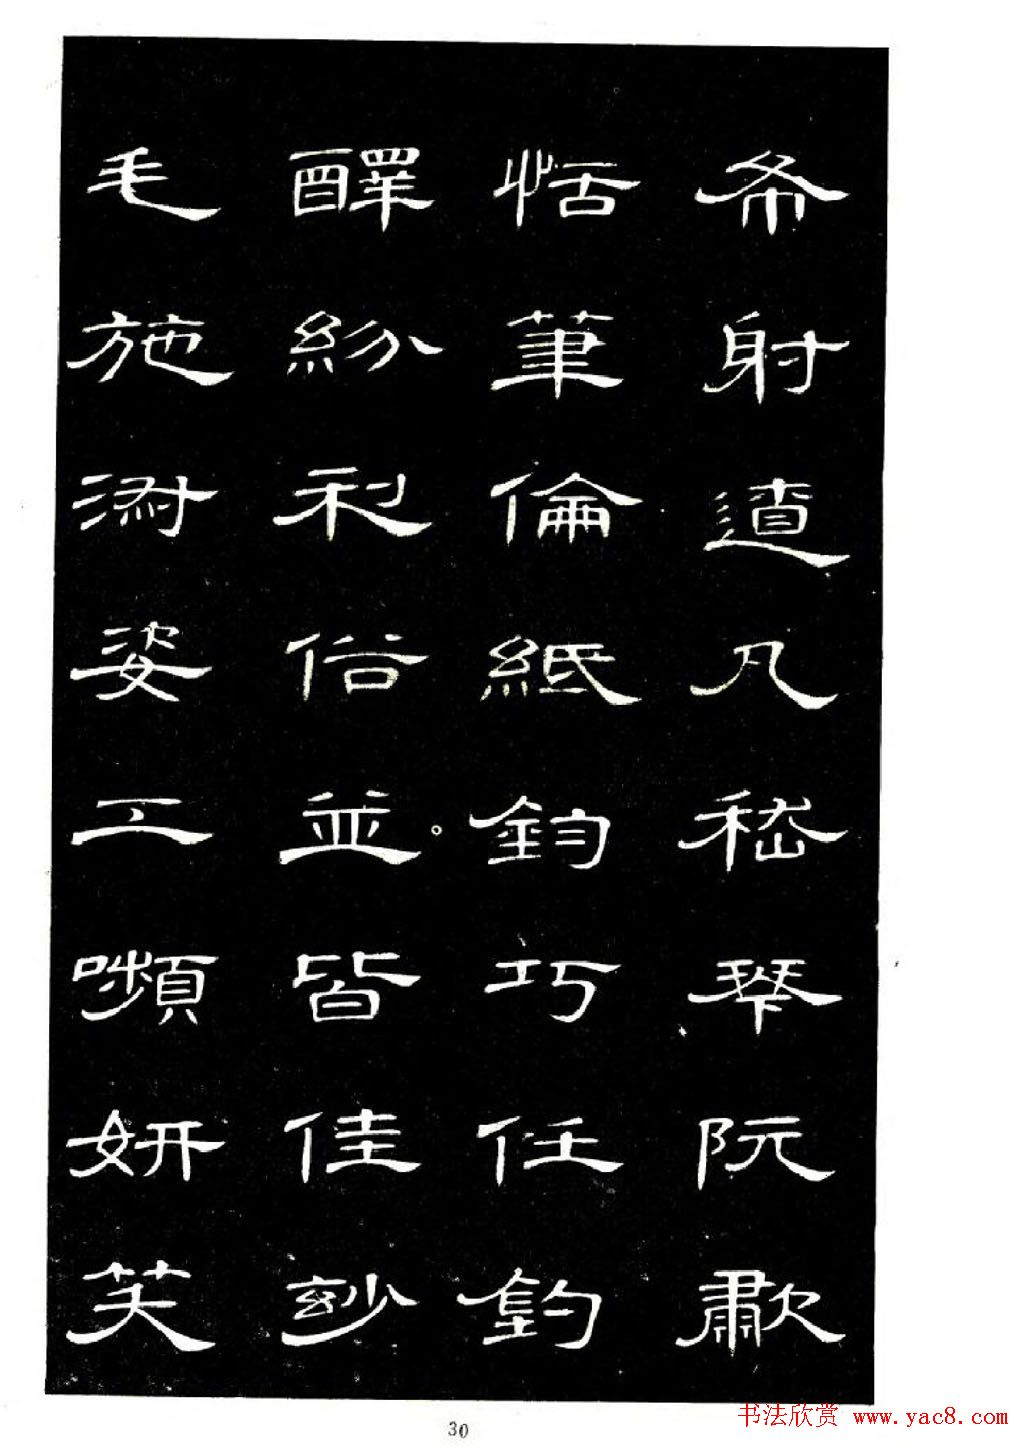 布射遼丸嵇琴阮歗
恬筆倫紙鈞巧任釣
釋紛利俗並皆佳妙
毛施淑姿工嚬妍笑
30
书法欣赏 www.yac8.com